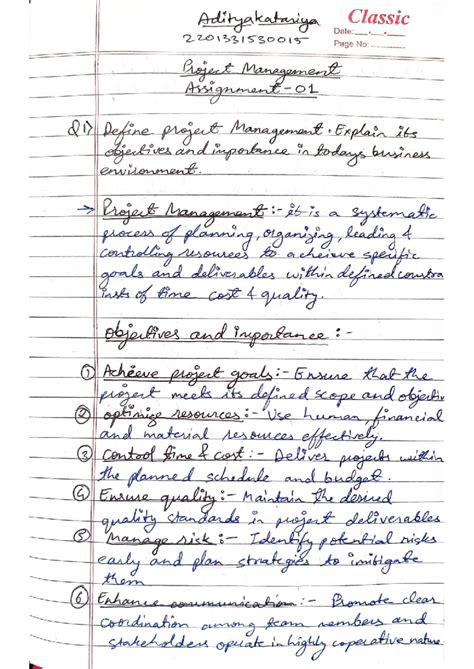 Adityakatariya
2201331530015
Classic
Date:
Page No:
Project Management
Assignment-01
Q1) Define project Management. Explain its
objectives and importance in todays business
environment.
→ Project Management:- it is a systematic
process of planning, organizing, leading &
controlling resources to acheieve specific
goals and deliverables within defined constra
ints of time cost & quality.
objectives and importance:-
① Achieeve project goals:- Ensure that the
project meets its defined scope and objectiv
② optimize resources:- Use human, financial
and material resources effectively.
③ Control time & cost:- Deliver projects within
the planned schedule and budget.
④ Ensure quality:- Maintain the desired
quality standards in project deliverables
⑤ Manage risk:- Identify potential risks
early and plan strategies to imitigate
them
⑥ Enhance communication:- Promote clear
coordination among team members and
stakeholders operate in highly coperative nature